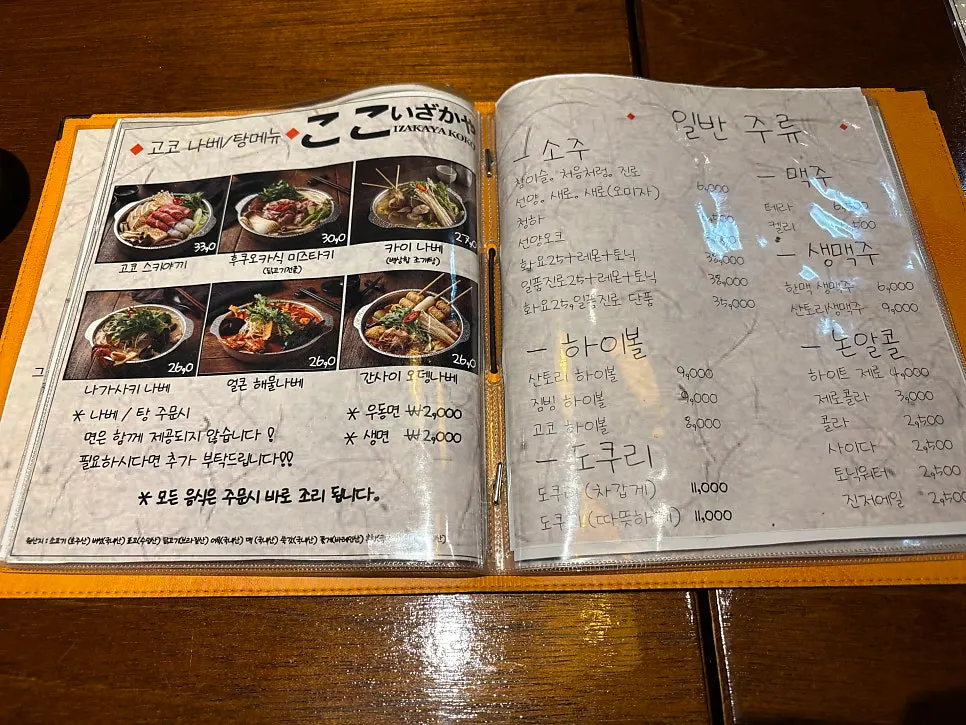 고코 나베/탕메뉴
ここいざかや
IZAKAYA KOKO
33,0
고코 스키야끼
30,0
후쿠오카식 미즈타키
(닭고기전골)
카이 나베
(백합탕 조개탕)
26,0
나가사키 나베
26,0
얼큰 해물나베
26,0
간사이 오뎅나베
* 나베 / 탕 주문시
면은 함께 제공되지 않습니다!
필요하시다면 추가 부탁드립니다!!
* 우동면 ₩2,000
* 생면 ₩2,000
* 모든 음식은 주문시 바로 조리 됩니다.
일반 주류
소주
참이슬, 처음처럼, 진로
선양, 새로, 새로(오미자) 6,000
청하
선양오크
화요25+레몬+토닉 38,000
일품진로25+레몬+토닉 38,000
화요25, 일품진로 단품 35,000
- 하이볼
산토리 하이볼 9,000
짐빔 하이볼 9,000
고코 하이볼 8,000
- 도쿠리
도쿠리 (차갑게) 11,000
도쿠리 (따뜻하게) 11,000
- 맥주
테라
켈리
- 생맥주
한맥 생맥주 6,000
산토리생맥주 9,000
- 논알콜
하이트 제로 4,000
제로콜라 3,000
콜라 2,500
사이다 2,500
토닉워터 2,500
진저에일 2,500